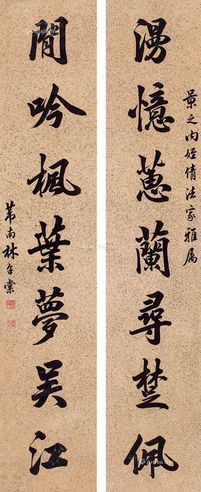 景之內姪倩法家雅屬
漫憶蕙蘭尋楚佩
閒吟楓葉夢吳江
芾南林召棠